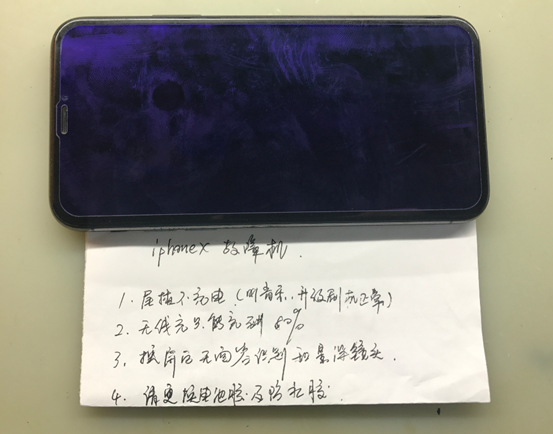 iphonex 故障机.
1. 尾插不充电 (听音乐, 升级刷机正常)
2. 无线充只能充到 80%
3. 换屏后无面容识别和景深镜头.
4. 请更换电池胶及防水胶.